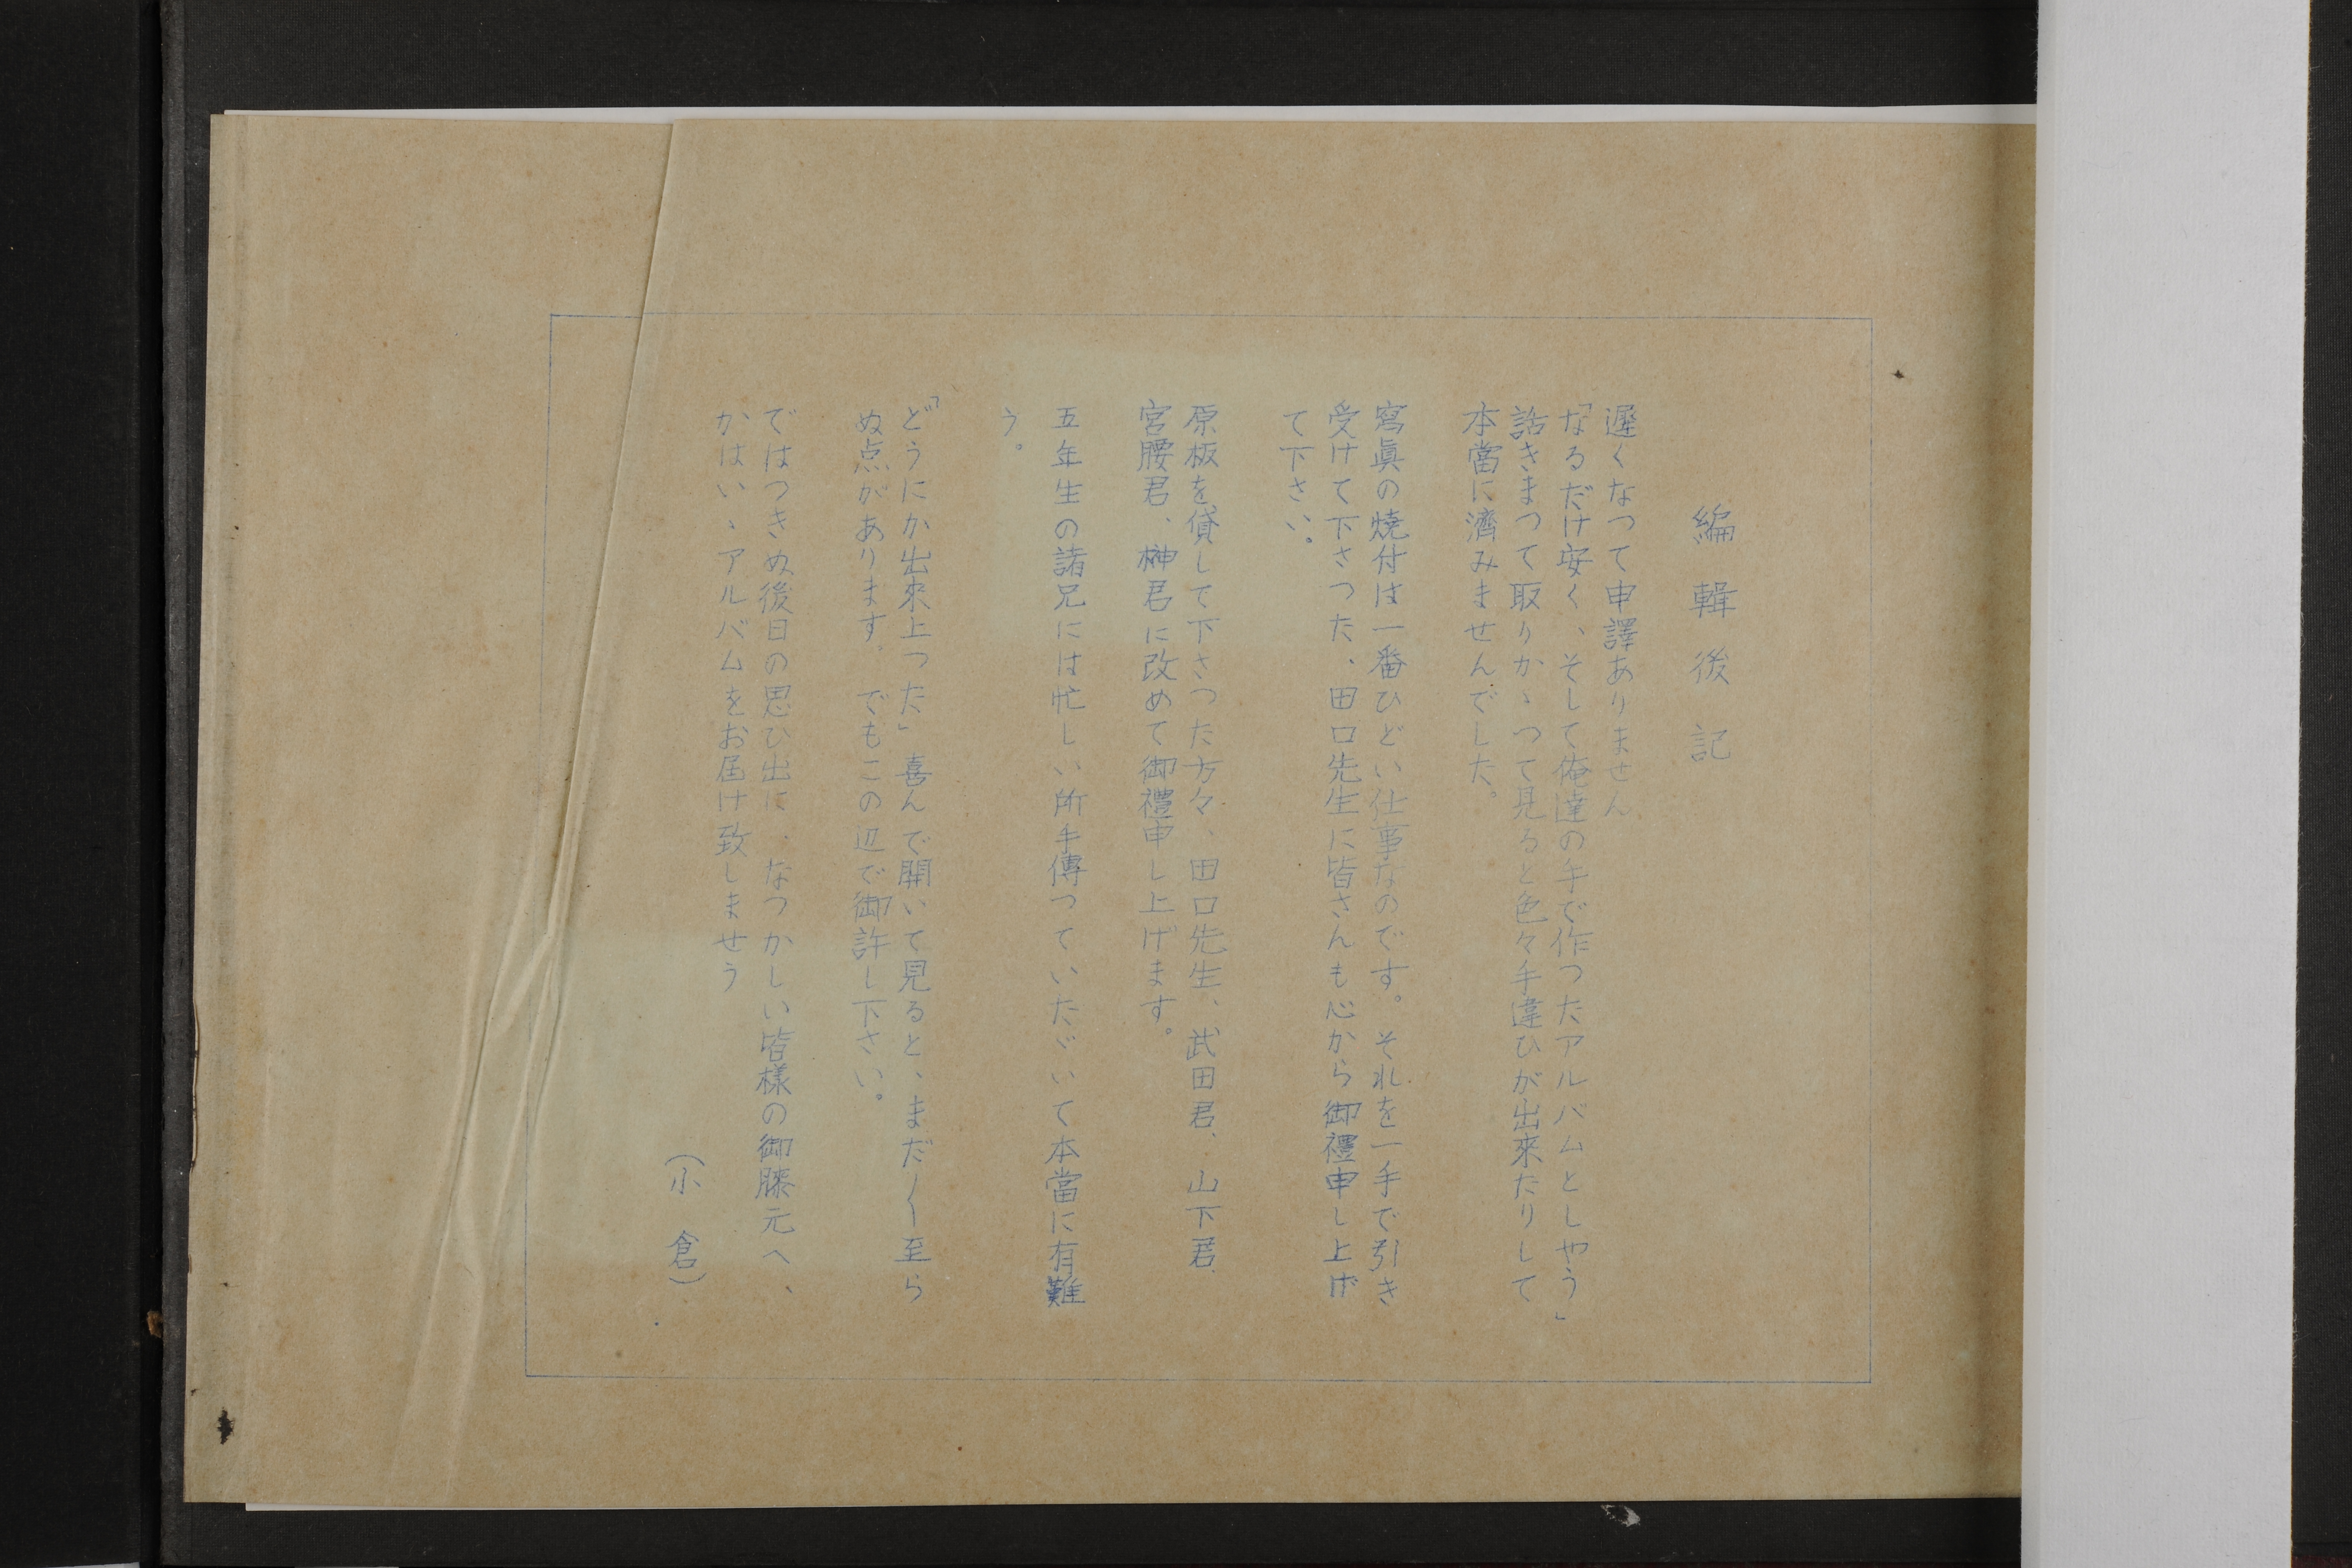 編輯後記
遲くなつて申譯ありません
「なるだけ安く、そして俺達の手で作つたアルバムとしやう」
話きまつて取りかゝつて見ると色々手違ひが出來たりして
本當に濟みませんでした。
寫眞の燒付は一番ひどい仕事なのです。それを一手で引き
受けて下さつた、田口先生に皆さんも心から御禮申し上げ
て下さい。
原板を貸して下さつた方々、田口先生、武田君、山下君、
宮腰君、榊君に改めて御禮申し上げます。
五年生の諸兄には忙しい所手傳つていたゞいて本當に有難
う。
「どうにか出來上つた」喜んで開いて見ると、まだ〱至ら
ぬ点があります。でもこの辺で御許し下さい。
ではつきぬ後日の思ひ出に、なつかしい皆樣の御膝元へ、
かはいゝアルバムをお届け致しませう
（小倉）